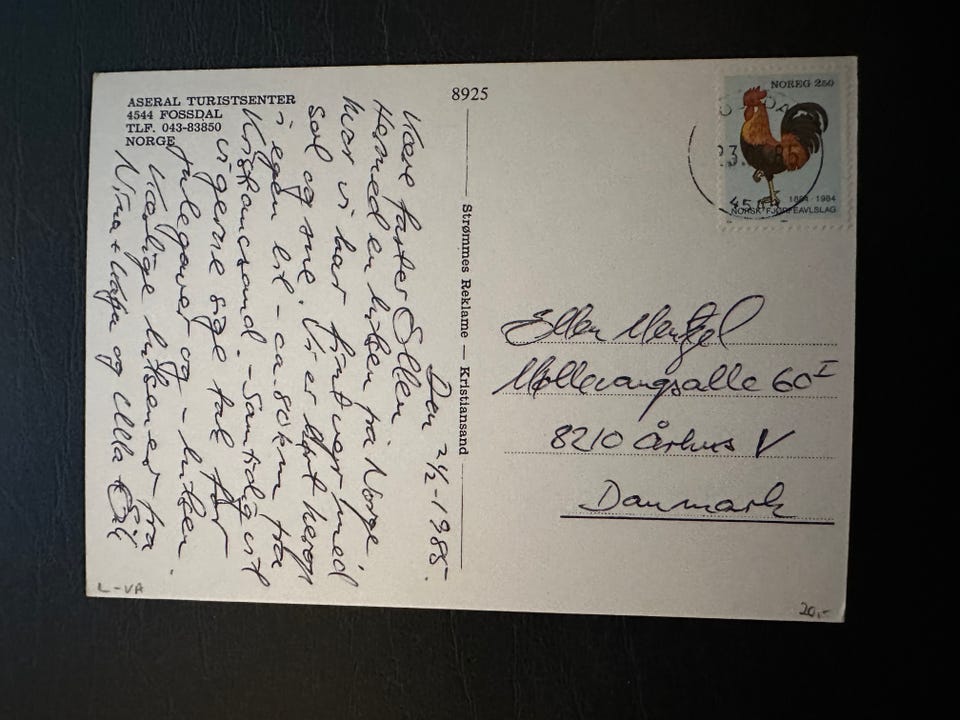 ASERAL TURISTSENTER
4544 FOSSDAL
TLF. 043-83850
NORGE
8925
Den 21/2-1985.
Kære faster Ellen
Hermed en hilsen fra Norge
hvor vi har fint vejr med
sol og sne. Vi er kørt herop
i egen bil - ca. 90km fra
Kristiansand. - Samtidig vil
vi gerne sige tak for
julegaver og - hilsen.
Kærlige hilsener fra
Nina + og Ulla
Strømmes Reklame — Kristiansand
NOREG 250
1884 1984
NORSK FJØRFEAVLSLAG
23. 85
Ellen Mentzel
Møllevangsalle 60 I
8210 Århus V
Danmark
L-VA
20,-